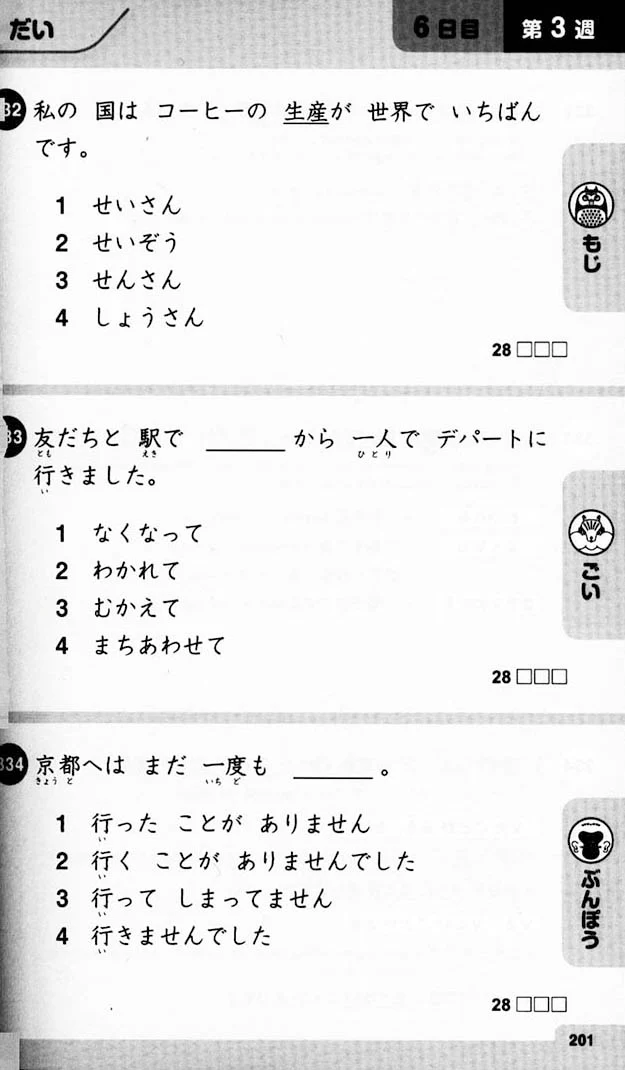 だい
6日目 第3週
332 私の 国は コーヒーの 生産が 世界で いちばん
です。
1 せいさん
2 せいぞう
3 せんさん
4 しょうさん
もじ
28 □□□
33 友だちと 駅で ______ から 一人で デパートに
とも えき ひとり
行きました。
い
1 なくなって
2 わかれて
3 むかえて
4 まちあわせて
ごい
28 □□□
334 京都へは まだ 一度も ______ 。
きょうと いちど
1 行った ことが ありません
い
2 行く ことが ありませんでした
い
3 行って しまってません
い
4 行きませんでした
い
ぶんぽう
28 □□□
201